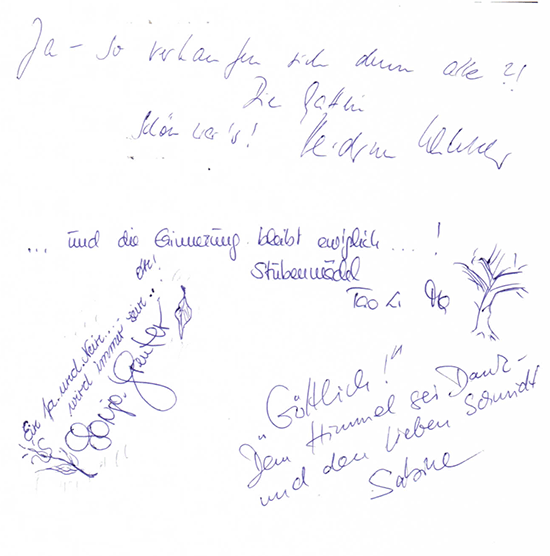 Ja - so verkaufen sich denn alle?!
Die Gattin
Schön war's! Heidrun
... und die Erinnerung bleibt ewiglich ....!
Stubenmädel
Tao Li
Ein Ja und Nein...
wird immer sein...
Sonja
"Göttlich!"
Dem Himmel sei Dank -
und den lieben Schmidt
Sabine